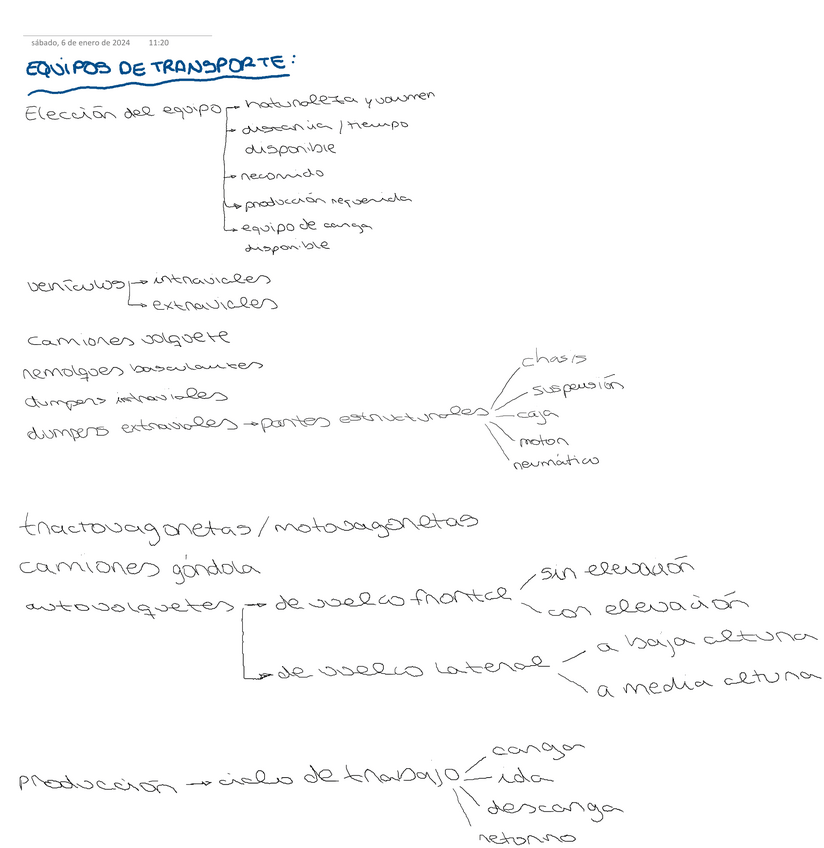 sábado, 6 de enero de 2024 11:20
EQUIPOS DE TRANSPORTE:
Elección del equipo → naturaleza y volumen
→ distancia / tiempo
disponible
→ recorrido
→ producción requerida
→ equipo de carga
disponible
vehículos → intraviales
→ extraviales
camiones volquete
remolques basculantes
dumpers intraviales
dumpers extraviales → partes estructurales
chasis
suspensión
caja
motor
neumático
tractovagonetas / motovagonetas
camiones góndola
autovolquetes → de vuelco frontal
sin elevación
con elevación
→ de vuelco lateral
a baja altura
a media altura
producción → ciclo de trabajo
carga
ida
descarga
retorno